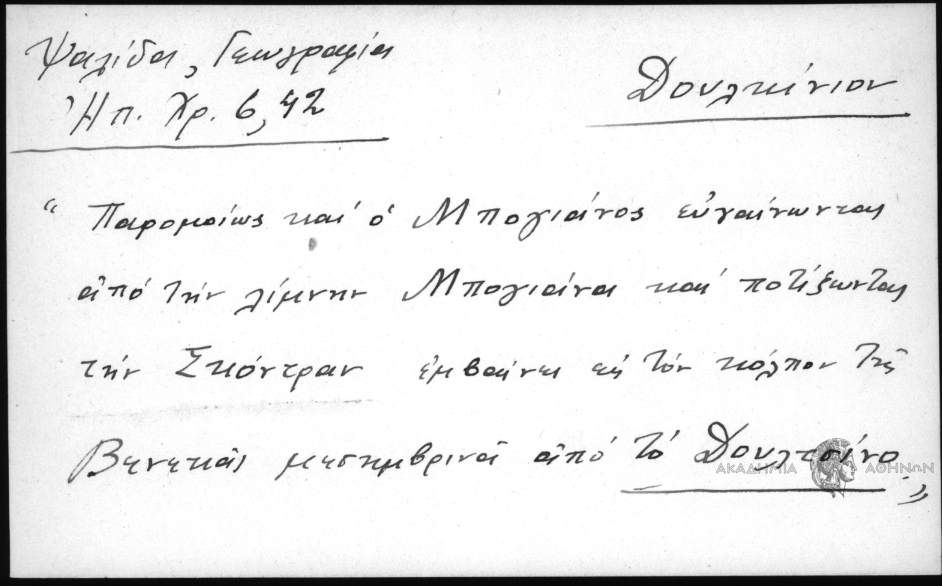 Ψαλίδα, Γεωγραφία
Ἠπ. Χρ. 6, 42
Δουλκίνιον
“ Παρομοίως καί ὁ Μπογιάνος εὐγαίνωντας
ἀπό τήν λίμνην Μπογιάνα καί ποτίζωντας
τήν Σκόντραν ἐμβαίνει εἰς τόν κόλπον τῆς
Βενετιᾶς μεσημβρινά ἀπό τό Δουλτσίνο „
ΑΚΑΔΗΜΙΑ ΑΘΗΝΩΝ